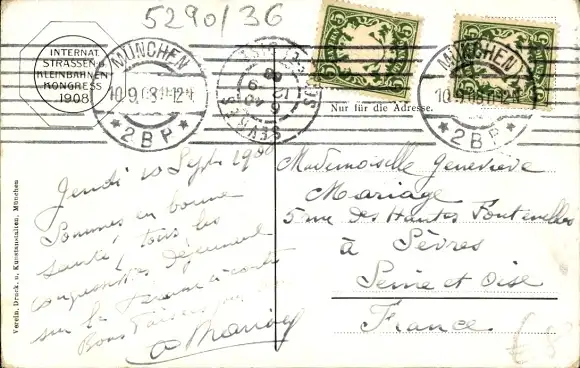 5290/36
INTERNAT.
STRASSEN-
KLEINBAHNEN
KONGRESS
1908
MÜNCHEN
10.9.08
* 2 B P *
SEVRES
5
5
5
5
MÜNCHEN
10.9.08
* 2 B P *
Nur für die Adresse.
Jeudi 10 Sept 1908
Sommes en bonne
santé, tous les
Déjeunent
sur la
Bons
Mariage
Mademoiselle Geneviève
Mariage
5 rue des Hautes Fontenelles
à Sèvres
Seine et Oise
France
Verein. Druck. u. Kunstanstalten, München